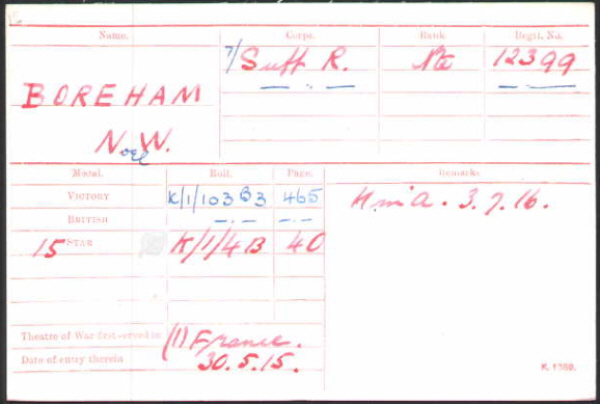 Name. Corps. Rank Regtl. No.
7/Suff R. Pte 12399
BOREHAM — " — — " —
N. W.
Noel
Medal. Roll. Page. Remarks
VICTORY K/1/103 B3 465 K in A. 3.7.16.
BRITISH — " — — " —
15 STAR K/1/4B 40
Theatre of War first served in (1) France.
Date of entry therein 30.5.15.
K. 1380.